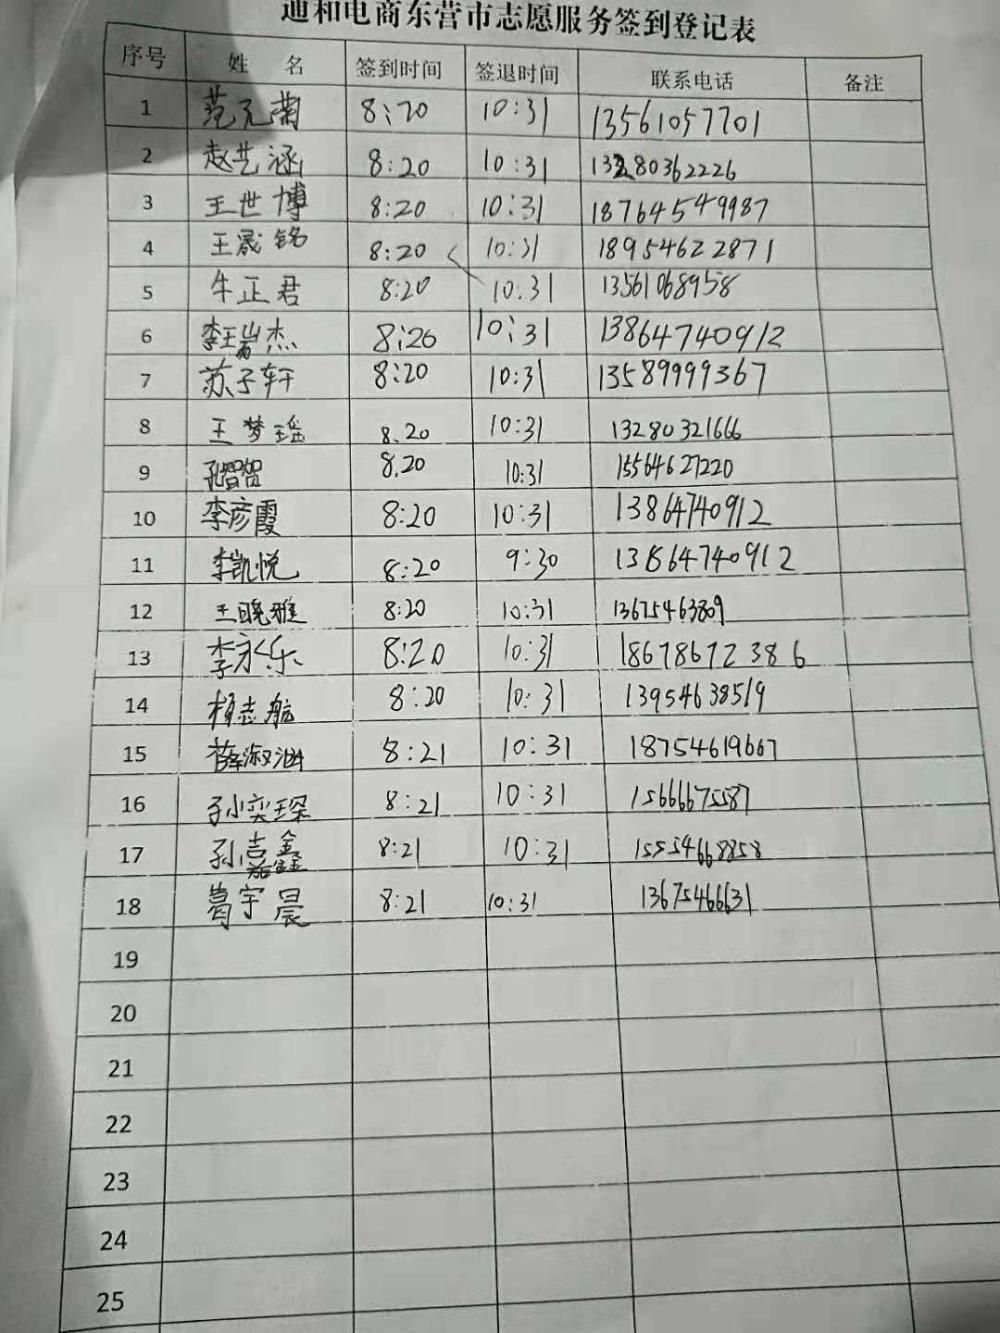 通和电商东营市志愿服务签到登记表
序号 姓 名 签到时间 签退时间 联系电话 备注
1 范元菊 8:20 10:31 13561057701
2 赵艺涵 8:20 10:31 13280362226
3 王世博 8:20 10:31 18764549987
4 王晟铭 8:20 10:31 18954622871
5 牛正君 8:20 10:31 13561068958
6 李王岩杰 8:20 10:31 13864740912
7 苏子轩 8:20 10:31 13589999367
8 王梦瑶 8.20 10:31 13280321666
9 孔智贺 8.20 10:31 15564627220
10 李彦霞 8:20 10:31 13864740912
11 李凯悦 8:20 9:30 13864740912
12 王晓雅 8:20 10:31 13675463809
13 李永乐 8:20 10:31 18678672386
14 杨志航 8:20 10:31 13954638519
15 薛淑涵 8:21 10:31 18754619667
16 孙奕琛 8:21 10:31 15666675587
17 孙嘉鑫 8:21 10:31 15554668858
18 葛宇晨 8:21 10:31 13675466631
19
20
21
22
23
24
25